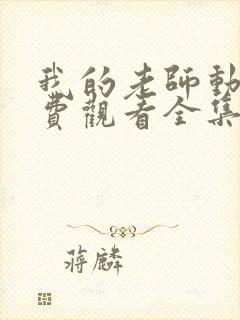 我的老師動
費觀看全集
蔣麟